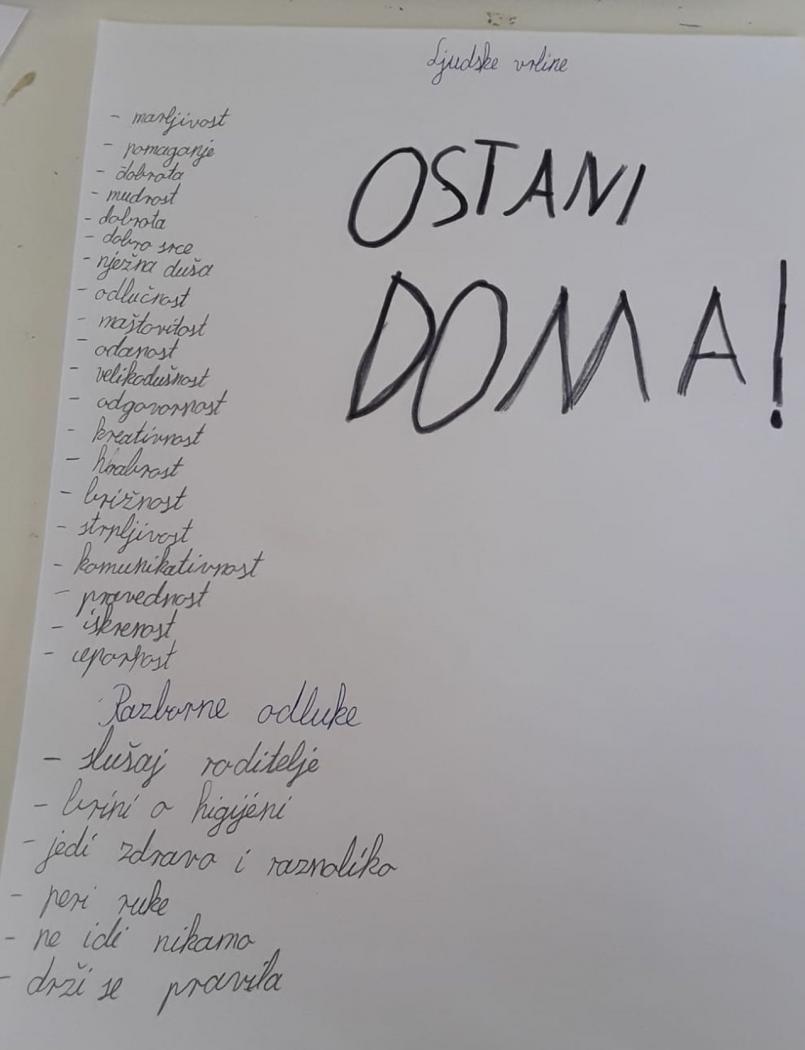 Ljudske vrline
- marljivost
- pomaganje
- dobrota
- mudrost
- dobrota
- dobro srce
- nježna duša
- odlučnost
- maštovitost
- odanost
- velikodušnost
- odgovornost
- kreativnost
- hrabrost
- brižnost
- strpljivost
- komunikativnost
- pravednost
- iskrenost
- upornost
OSTANI
DOMA!
Razborne odluke
- slušaj roditelje
- brini o higijeni
- jedi zdravo i raznoliko
- peri ruke
- ne idi nikamo
- drži se pravila